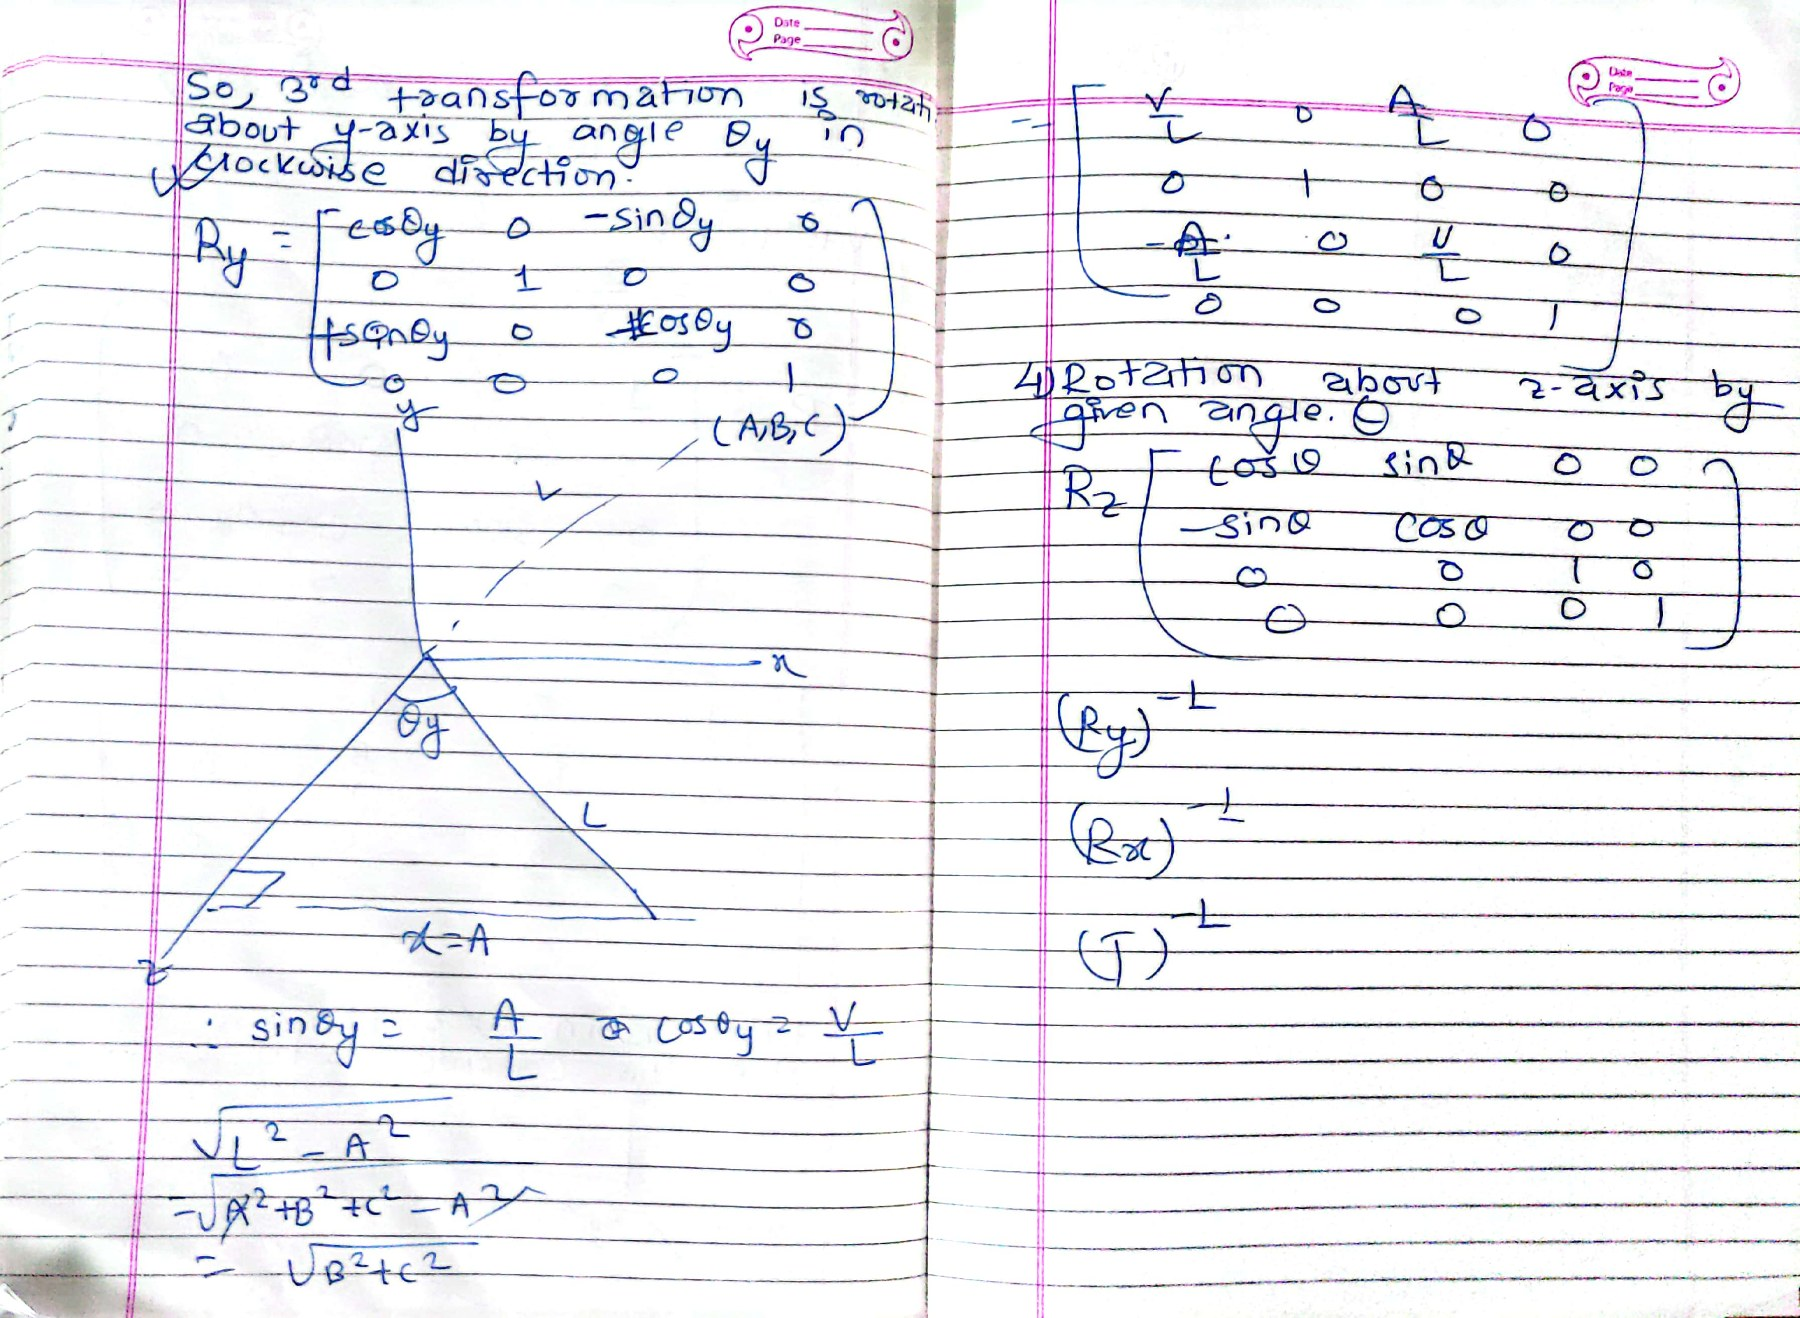 Date
Page
So, 3rd transformation is rotati
about y-axis by angle θy in
clockwise direction.
Ry = [ cosθy 0 -sinθy 0
0 1 0 0
+sinθy 0 cosθy 0
0 0 0 1 ]
y
(A,B,C)
L
x
θy
L
x=A
z
∴ sinθy = A/L & cosθy = V/L
√L² - A²
= √A² + B² + C² - A²
= √B² + C²
Date
Page
= [ V/L 0 A/L 0
0 1 0 0
-A/L 0 V/L 0
0 0 0 1 ]
4) Rotation about z-axis by
given angle. θ
Rz [ cosθ sinθ 0 0
-sinθ cosθ 0 0
0 0 1 0
0 0 0 1 ]
(Ry)⁻¹
(Rx)⁻¹
(T)⁻¹